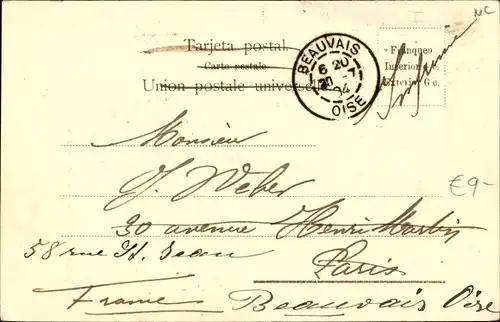 NC
Tarjeta postal
Carte postale
Union postale universelle
BEAUVAIS
6 20
7
04
OISE
Franqueo
Interior
Exterior 6 c.
Monsieur
J. Weber
30 avenue Henri Martin
58 rue St. Jean
Paris
France Beauvais Oise
€9-